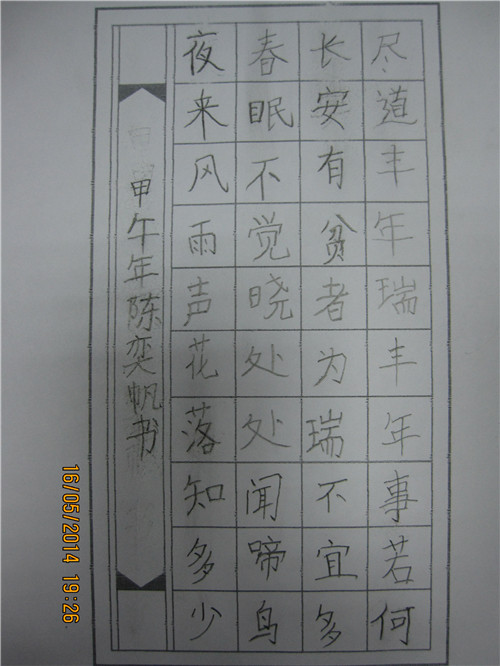 尽道丰年瑞丰年事若何
长安有贫者为瑞不宜多
春眠不觉晓处处闻啼鸟
夜来风雨声花落知多少
甲午年陈奕帆书
16/05/2014 19:26